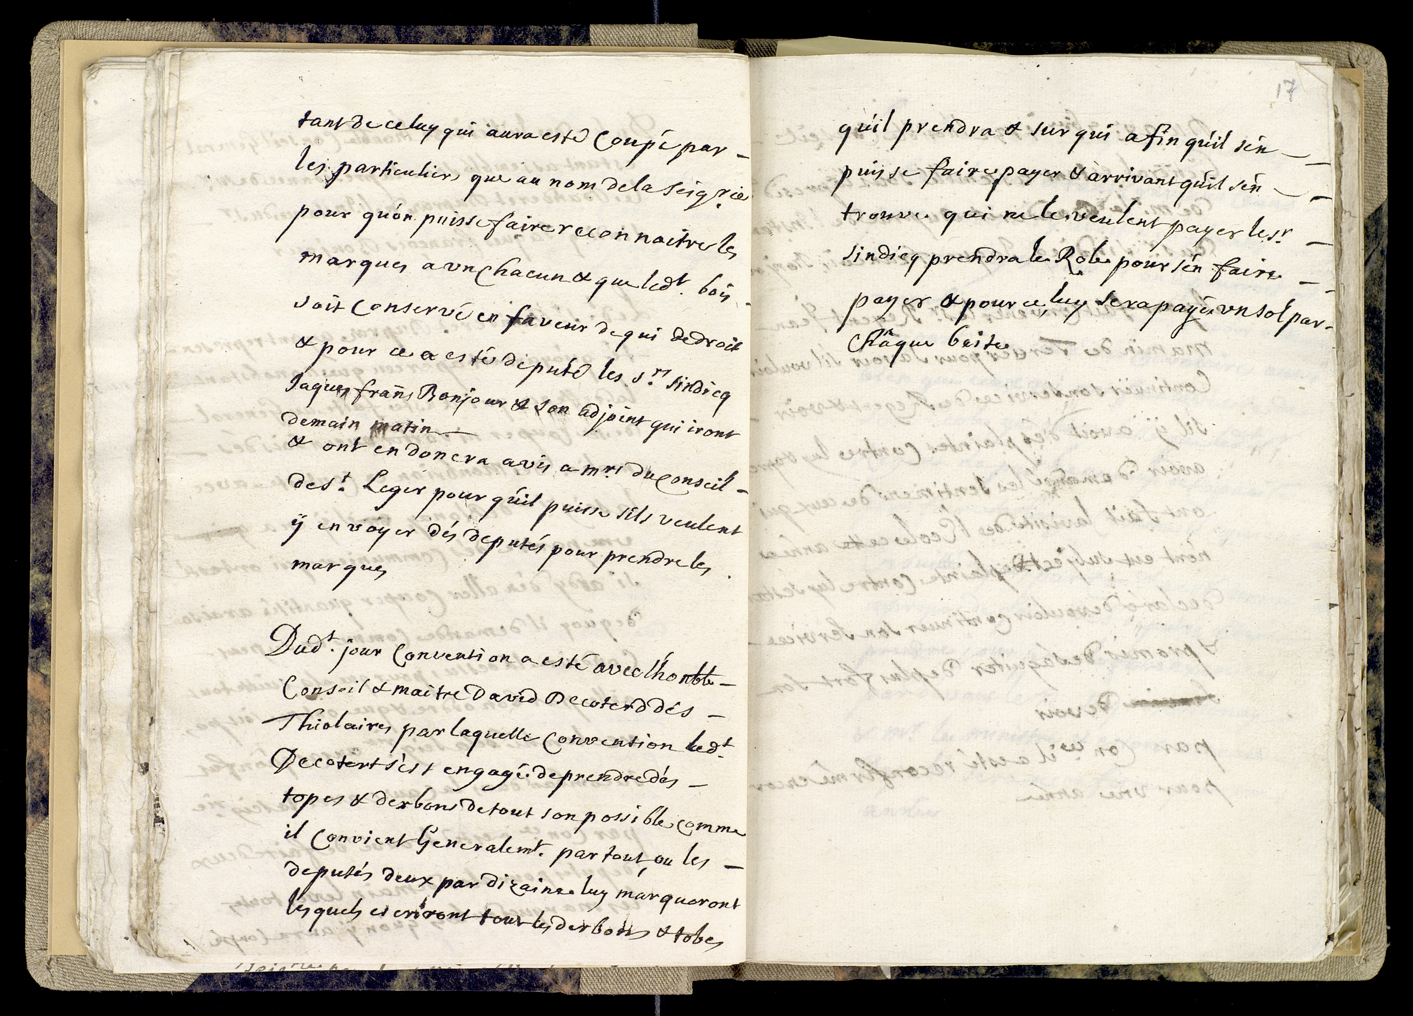 tant de celuy qui aura esté Coupé par
les particulier que au nom de la Seigrie
pour qu'on puisse faire reconnoitre les
marques a vn Chacun & que ledt. bois
soit Conservé en faveur de qui de droit
& pour ce a esté deputé les srs. sindicq
Jaques frans Bonjour & son adjoint qui iront
demain matin
& ont en donera avis a mrs du Conseil
de st. Leger pour quil puisse s'ils veulent
ÿ envoyer dés deputés pour prendre les
marques
Dudt. jour Convention a esté avec lhonble
Conseil & maitre David Decoterd dés
Thiolaires par laquelle Convention ledt
Decotert s'est engagé de prendre dés
topes & derbons de tout son possible comme
il Convient Generalemt. partout ou les
deputés deux par dizaine luy marqueront
lesquels escriront tout les derbons & tobes
17
qu'il prendra & sur qui afin qu'il s'én
puisse faire payer & arrivant qu'il s'én
trouve qui ne le veulent payer le sr
sindicq prendra le Role pour s'én faire
payer & pour ce luy sera payé vn sol par
Châque beste